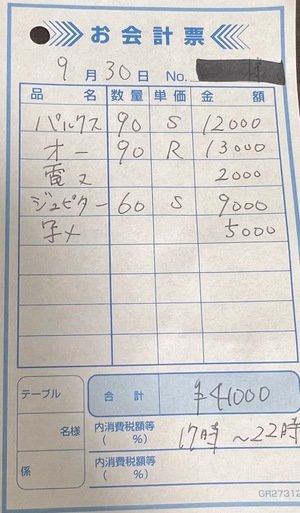 お会計票
9月30日 No.
品名 数量 単価 金額
パルクス 90 S 12000
オー 90 R 13000
電マ 2000
ジュピター 60 S 9000
写メ 5000
テーブル 合計 ¥41000
名様 内消費税額等 ( %) 17時~22時
係 内消費税額等 ( %)
GR27312